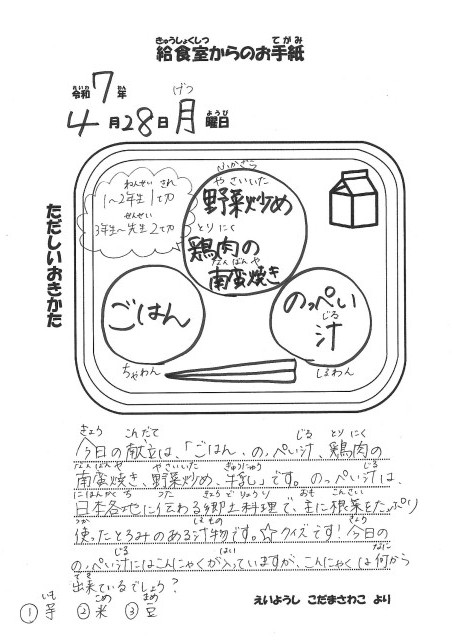 きゅうしょくしつ てがみ
給食室からのお手紙
れいわ ねん
令和7年
げつ ようび
4月28日月曜日
ただしいおきかた
ねんせい きれ
1~2年生1切
せんせい
3年生~先生2切
ふかざら
やさいいた
野菜炒め
とりにく
鶏肉の
なんばんや
南蛮焼き
ごはん
ちゃわん
のっぺい
じる
汁
しるわん
きょう こんだて じる とりにく
今日の献立は、「ごはん、のっぺい汁、鶏肉の
なんばんや やさいいた ぎゅうにゅう じる
南蛮焼き、野菜炒め、牛乳」です。のっぺい汁は、
にほんかくち つた きょうどりょうり おも こんさい
日本各地に伝わる郷土料理で、主に根菜をたっぷり
つか しるもの きょう
使ったとろみのある汁物です。☆クイズです!今日の
じる はい なに
のっぺい汁にはこんにゃくが入っていますが、こんにゃくは何から
でき
出来ているでしょう?
いも こめ まめ
①芋 ②米 ③豆
えいようし こだまさわこ より